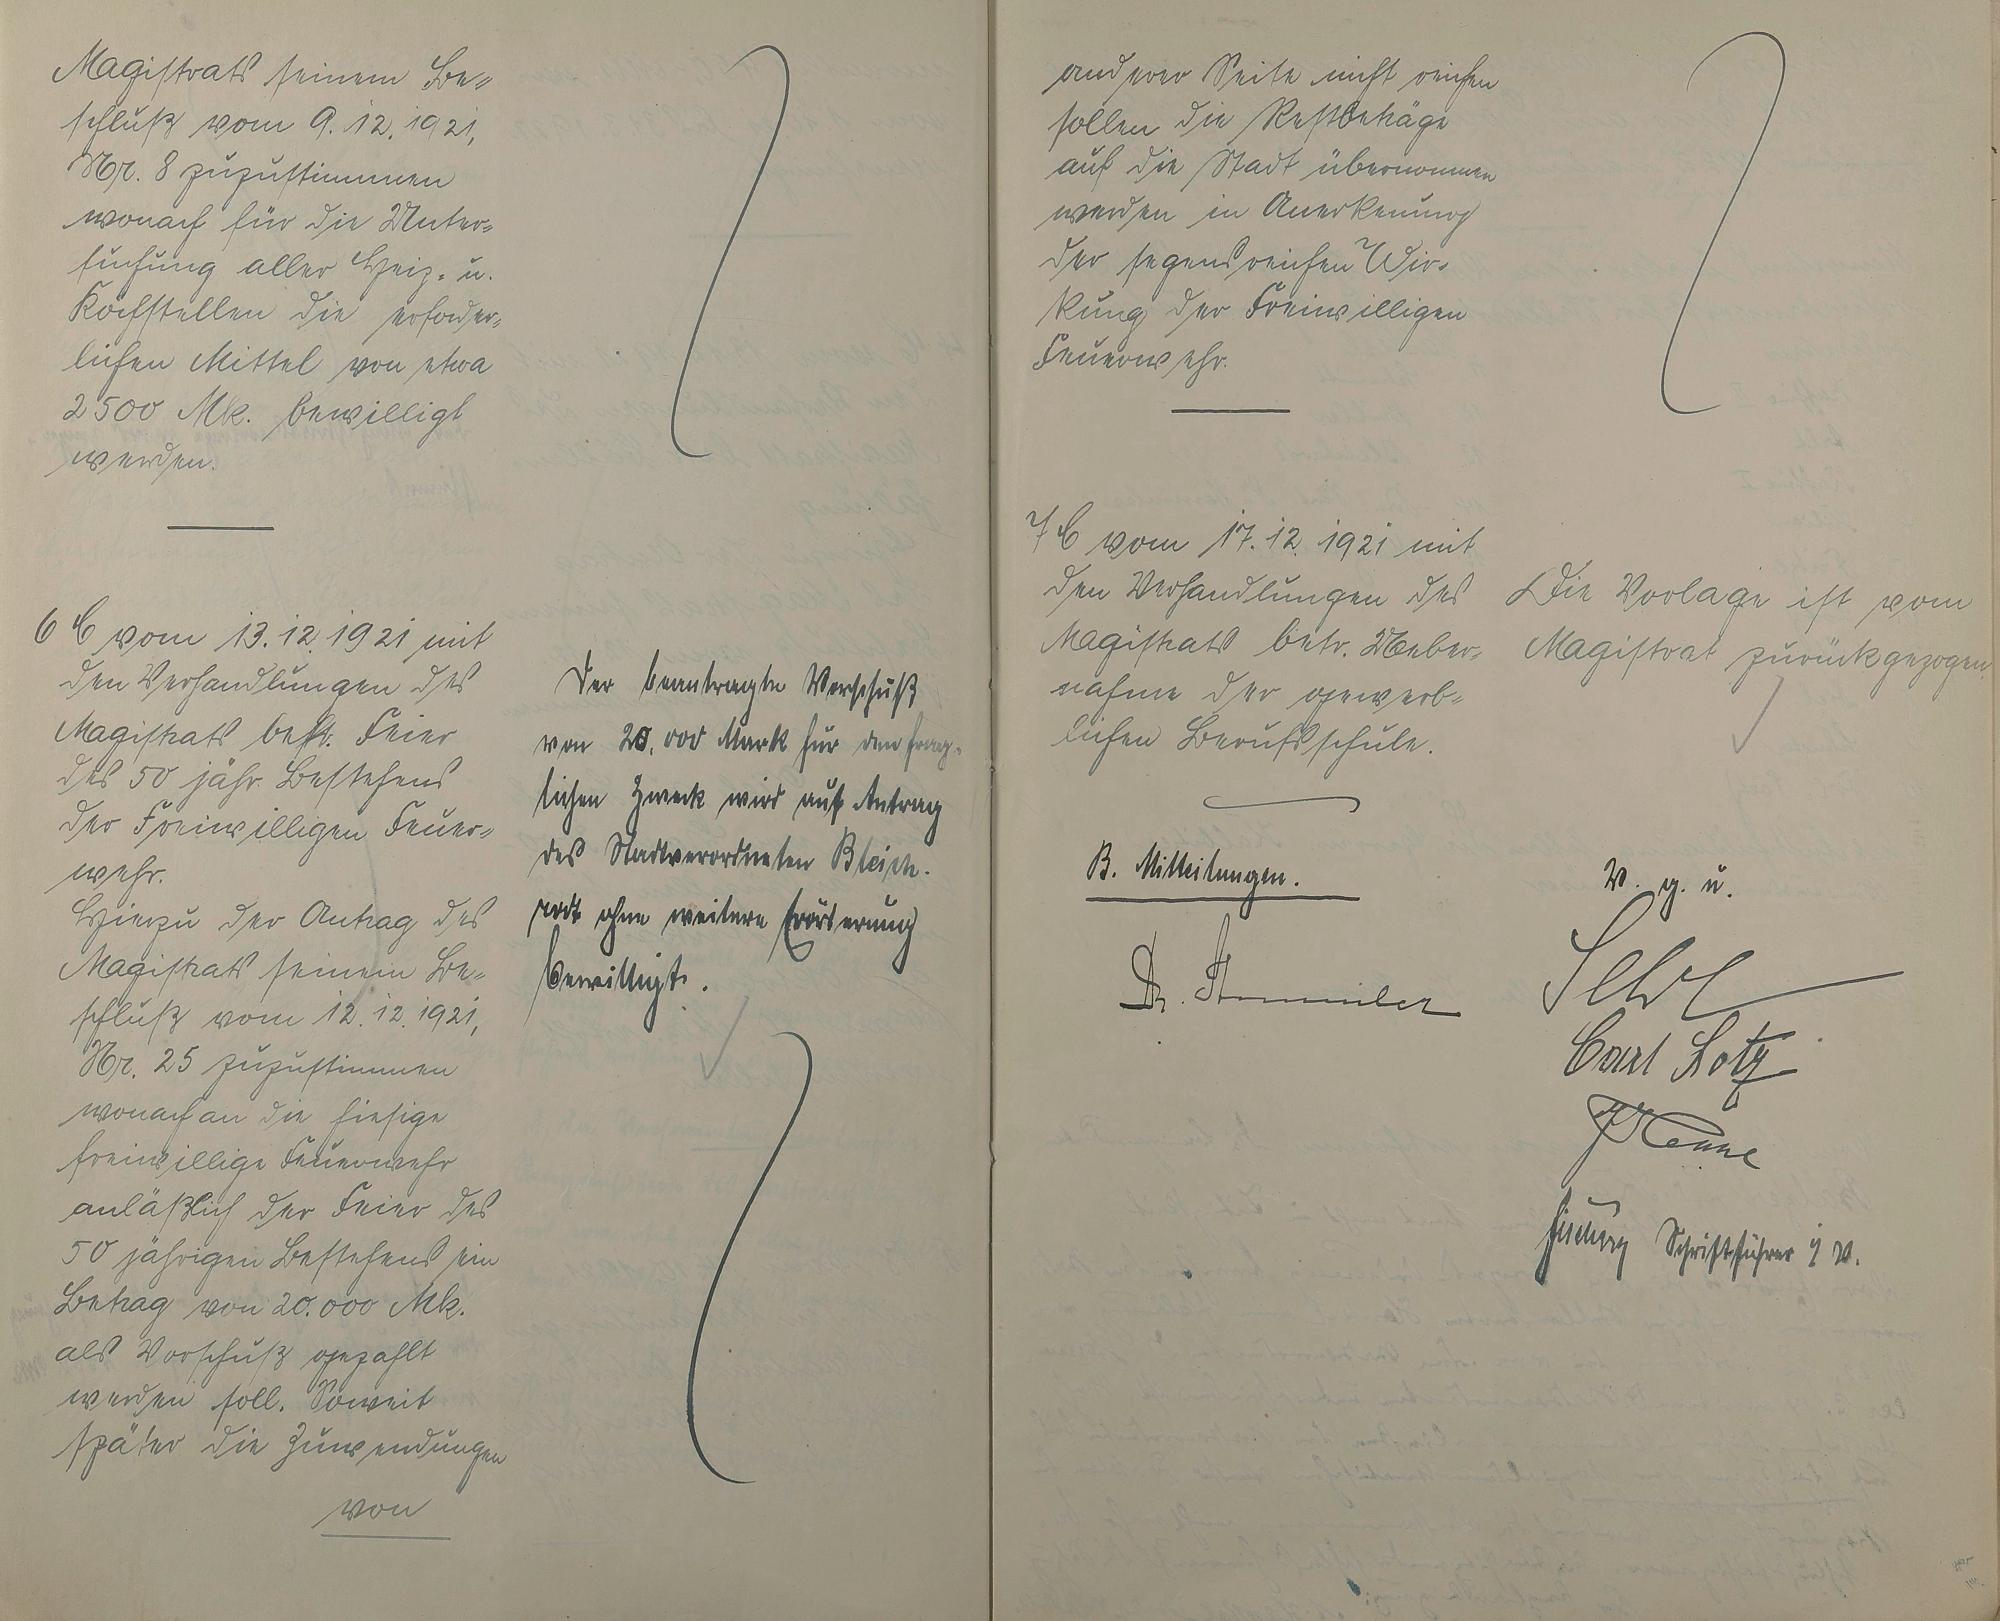 Magistrats seinem Be-
schluß vom 9. 12. 1921,
Nr. 8 zuzustimmen
wonach für die Unter-
suchung aller Heiz- u.
Kochstellen die erforder-
lichen Mittel von etwa
2500 Mk. bewilligt
werden.
6 C vom 13. 12. 1921 mit
den Verhandlungen des
Magistrats betr. Feier
des 50 jähr. Bestehens
der Freiwilligen Feuer-
wehr.
Hierzu der Antrag des
Magistrats seinem Be-
schluß vom 12. 12. 1921,
Nr. 25 zuzustimmen
wonach an die hiesige
freiwillige Feuerwehr
anläßlich der Feier des
50 jährigen Bestehens ein
Betrag von 20.000 Mk.
als Vorschuß gezahlt
werden soll. Soweit
später die Zuwendungen
von
Der beantragte Vorschuß
von 20.000 Mark für den frag-
lichen Zweck wird auf Antrag
des Stadtverordneten Bleich-
rodt ohne weitere Erörterung
bewilligt.
anderer Seite nicht reichen
sollen die Restbeträge
auf die Stadt übernommen
werden in Anerkennung
der segensreichen Wir-
kung der Freiwilligen
Feuerwehr.
7 C vom 17. 12. 1921 mit
den Verhandlungen des
Magistrats betr. Ueber-
nahme der gewerb-
lichen Berufsschule.
Die Vorlage ist vom
Magistrat zurückgezogen.
B. Mitteilungen.
V. g. u.
Dr. Stammler
Carl Lotz
Schriftführer i V.